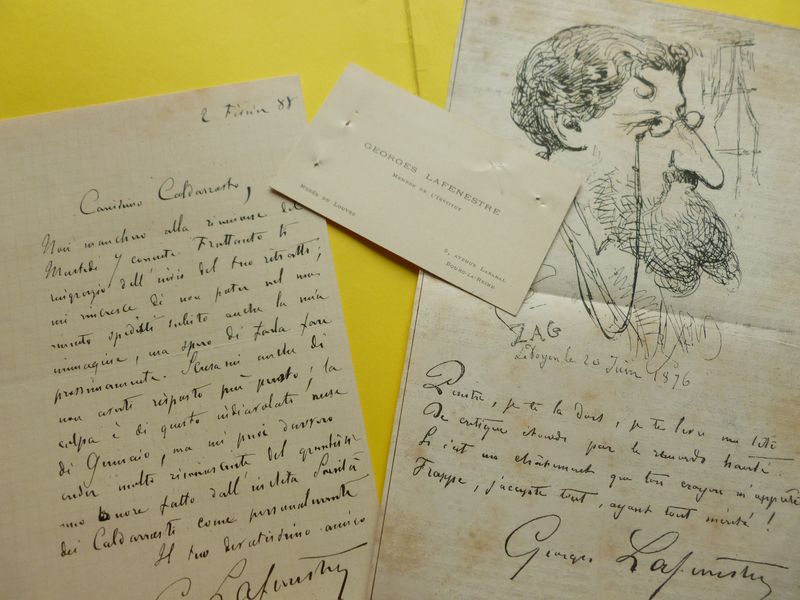 2 88
Carissimo Caldarrosto,
Non mancherò alla riunione del
Martedì 7 corrente. Frattanto ti
ringrazio dell'invio del tuo ritratto;
mi rincresce di non poter nel mo-
mento spedirti subito anche la mia
immagine, ma spero di farla fare
prossimamente. Scusami anche di
non averti risposto più presto; la
colpa è di questo indiavolato mese
di Gennaio, ma mi puoi davvero
creder molto riconoscente del grandissi-
mo onore fatto dall'inclita Società
dei Caldarrosti come personalmente
Il tuo devotissimo amico
G Lafenestre
GEORGES LAFENESTRE
MEMBRE DE L'INSTITUT
MUSÉE DU LOUVRE
5, AVENUE LAKANAL
BOURG-LA-REINE
Ledoyen le 20 Juin 1876
Peintre, je te la dois, je te livre ma tête
De critique étourdi par le remords hanté.
Si c'est un châtiment que ton crayon m'apprête
Frappe, j'accepte tout, ayant tout mérité !
Georges Lafenestre